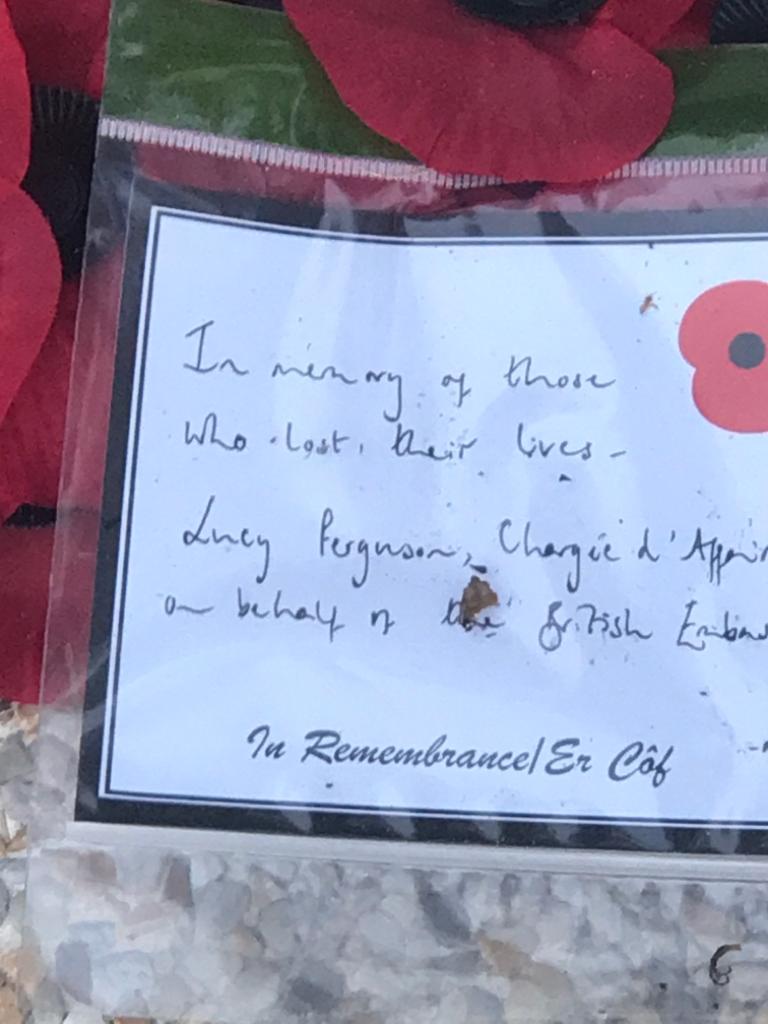 In memory of those
who lost their lives -
Lucy Ferguson, Chargée d'Affair
on behalf of the British Embas
In Remembrance/Er Côf